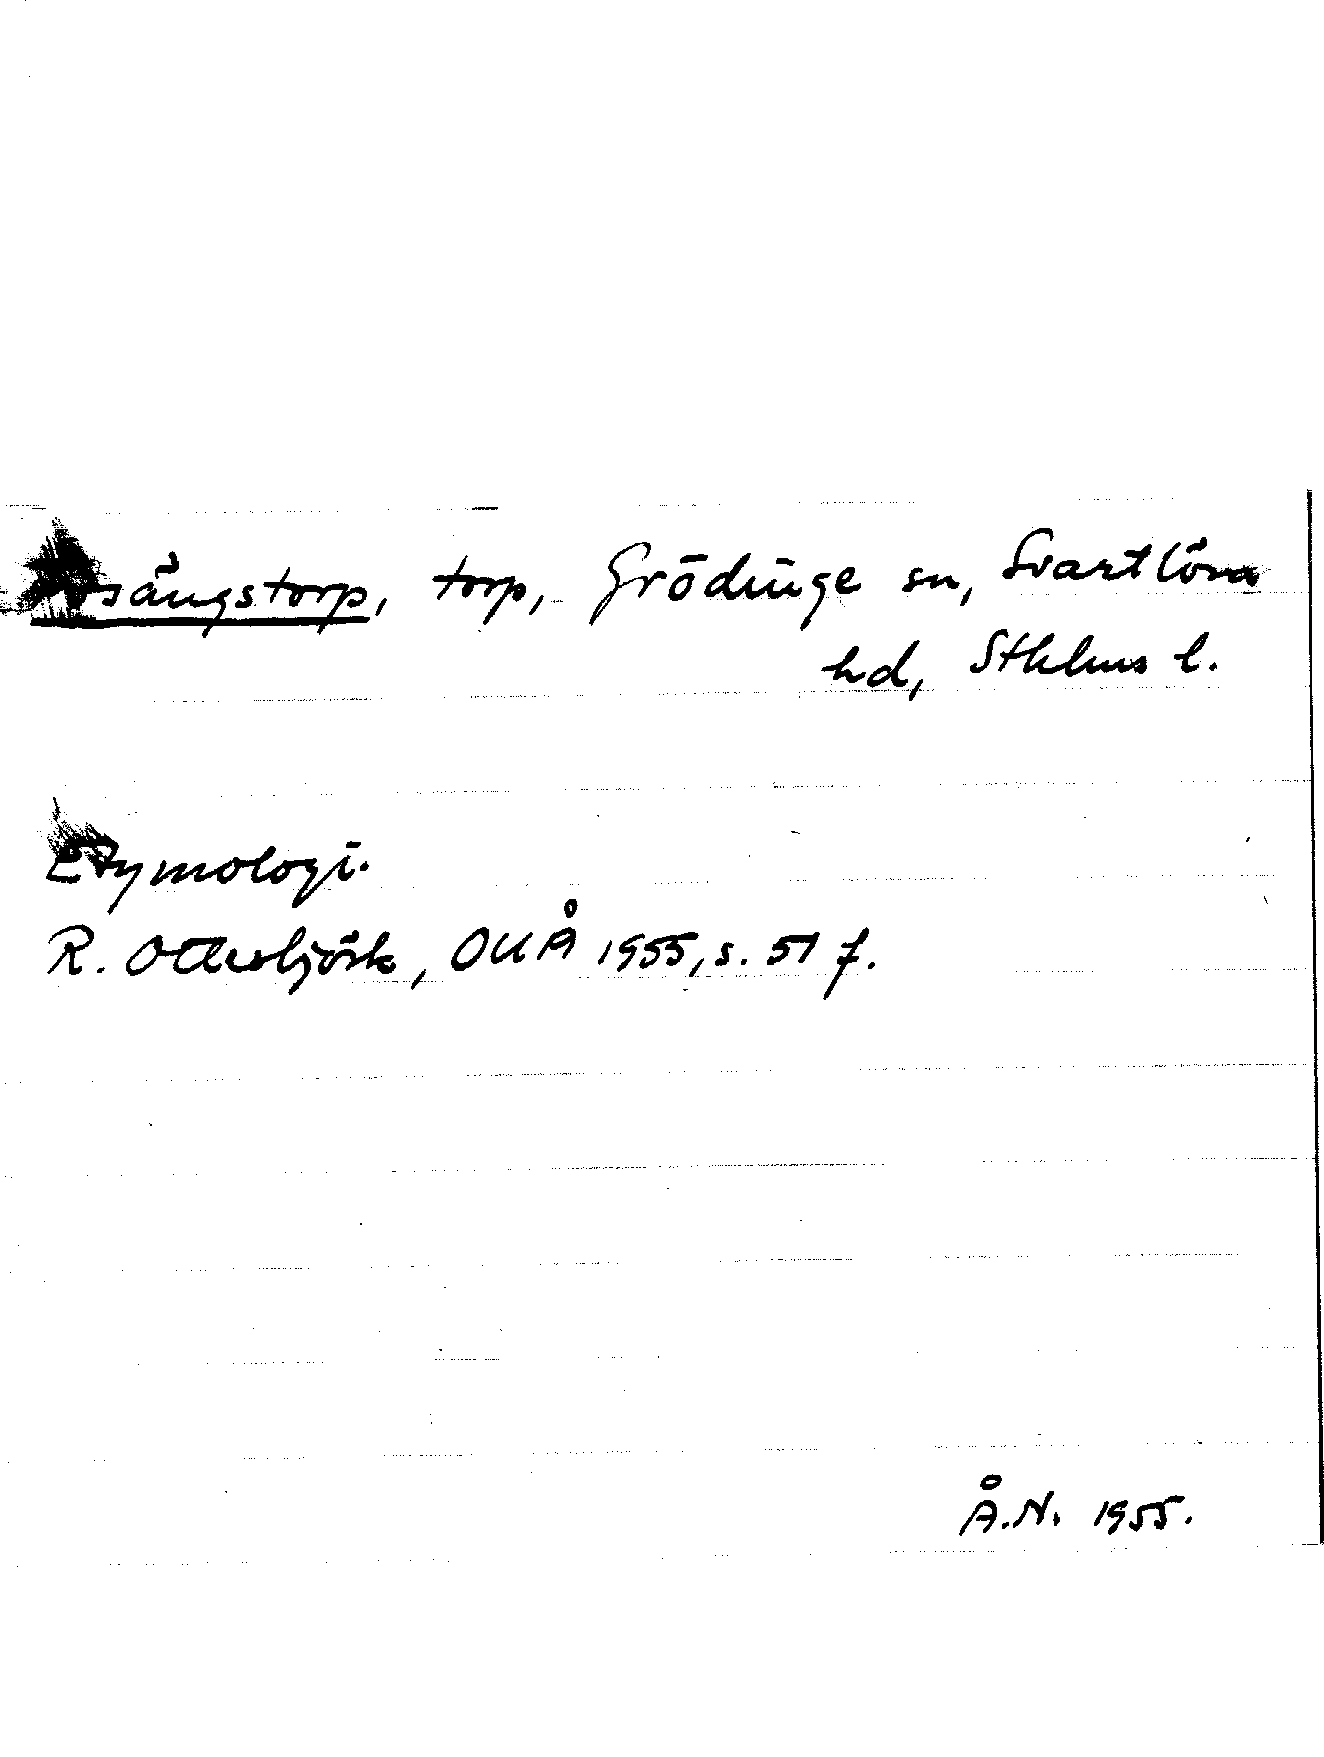 torp, Grödinge sn, Svartlösa
hd, Sthlms l.
Etymologi.
R. Otterbjörk, OUÅ 1955, s. 51 f.
Å.N. 1955.